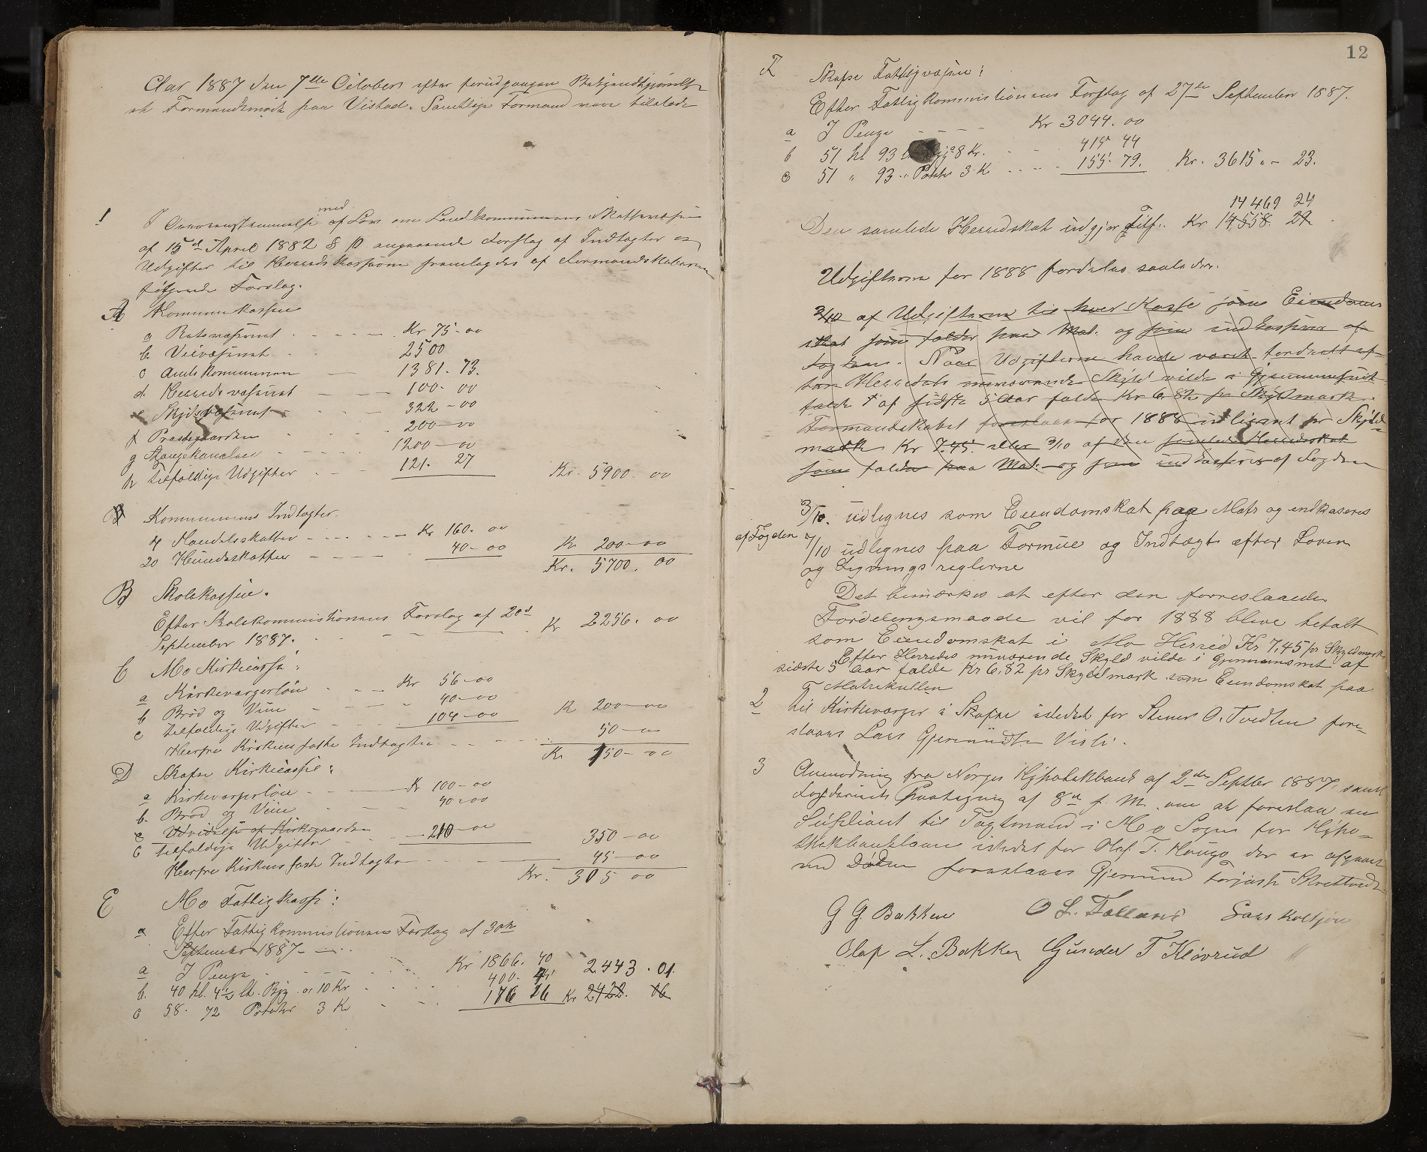 Aar 1887 den 7de October efter forudgaaen Bekjendtgjørelse
et Formandsmøde paa Vistad. Samtlige Formænd vare tilstede
1 I Overensstemmelse med af Lov om Landkommunens Skattevæsen
af 15de April 1882 § 10 angaaende Forslag af Indtægter og
Udgifter til Herredskasserne fremlagdes af Formandskaberne
følgende Forslag.
A Kommunekassen
a Retsvæsenet - - - - Kr 75-00
b Veivæsenet - - 2500
c Amtskommunen - - 1381. 73.
d Herredsvæsenet - - - 100-00
e Skydsvæsenet - - - 322-00
f Præstegaarden 200-00
g Kanaler - - - 1200-00
h Tilfældige Udgifter - - - 121. 27 Kr. 5900. 00
Kommunens Indtægter
1 Handelsskatter - - - - Kr 160. 00
2o Hundeskatten - - - 40-00 Kr 200-00
Kr. 5700. 00
B Skolekassen.
Efter Skolekommissionens Forslag af 20de
September 1887. - - - Kr 2256. 00
C Mo Kirkecasse:
a Kirkeværgerløn - - - Kr 56-00
b Brød og Viin - - - 40-00
c Tilfældige Udgifter - - - 104-00 Kr 200-00
Herfra Kirkens faste Indtægter - - - 50-00
Kr 150-00
D Skafse Kirkecasse:
a Kirkeværgerløn - - - Kr 100-00
b. Brød og Viin - - - 40-00
c Udvidelse af Kirkegaarden
c Tilfældige Udgifter - - 210-00 350-00
Herfra Kirkens faste Indtægter - - - 45-00
Kr. 305 00
E Mo Fattigkasse:
a Efter Fattigkommissionens Forslag af 30te
September 1887 - -
a I Penge - - - Kr 1866. 40
b. 40 hl. 42 lt. Byg a 10 Kr - - 400. 2443. 01
c 58. 72 Poteter 3 Kr - - 176 16 Kr 2422. 06
12
F Skafse Fattigvæsen:
Efter Fattigkommissionens Forslag af 27de September 1887.
a I Penge - - - - Kr 3044. 00
b 51 hl 93 Byg a 8 Kr. - - 415 44
c 51 " 93 " Potet 3 K - - - 155. 79. Kr. 3615 - 23.
14469 24
Den samlede Herredskat udgjør Tilf. Kr 14558. 27
Udgifterne for 1888 fordeles saaledes.
3/10 af Udgifterne til hver Kasse som Eiendoms
skat som falder paa Mat. og som indkasseres af
Fogden. Naar Udgifterne havde været fordelt af
Herredets nuværende Skyld vilde i Gjennemsnit
falde af sidste 5 Aar falde Kr 6.82 pr Skylmark
Formandskabet foreslaar for 1888 udlignet pr Skyld-
mark Kr 7.45 eller 3/10 af den samlede Herredskat
som falder paa Mat. og som indkasseres af Fogden
3/10 udlignes som Eiendomskat paa Mats og indkasseres
af Fogden 7/10 udlignes paa Formue og Indtægt efter Loven
og Lignings reglerne
Det bemærkes at efter den foreslaaede
Fordelingsmaade vil for 1888 blive betalt
som Eiendomskat i Mo Herred Kr 7.45 pr Skyldmark
Efter Herredes nuværende Skyld vilde i Gjennemsnit af
sidste 5 Aar falde Kr 6.82 pr Skyldmark som Eiendomskat paa
Matrikullen
2 Til Kirkeværger i Skafse istedet for Stener O. Tvedten fore-
slaaes Lars Gjermundsen Visli.
3 Anmodning fra Norges Hypotekbank af 2den Septbr 1887 samt
Fogderiets Paategning af 8de f. M. om at foreslaa en
Supliant til Taxtmand i Mo Sogn for Hypo-
thekbanklaan istedet for Olaf S. Haugo der er afgaaet
ved Døden foreslaaes Gjermund Torjusse Skrettveit
G G Bakken O L. Felland Lars Kolltjøn
Olaf L. Bakken Gunder T Kløvrud